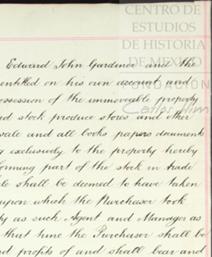 CENTRO DE
ESTUDIOS
DE HISTORIA
DE MEXICO
FUNDACIÓN
Carlos Slim
Edward John Gardiner and the
entitled on his own account and
ossession of the immoveable property
ed stock produce stores and other
sale and all books papers documents
g exclusively to the property hereby
forming part of the stock in trade
le shall be deemed to have taken
upon which the Purchaser took
y as such Agent and Manager as
that time the Purchaser shall be
nd profits of and shall bear and